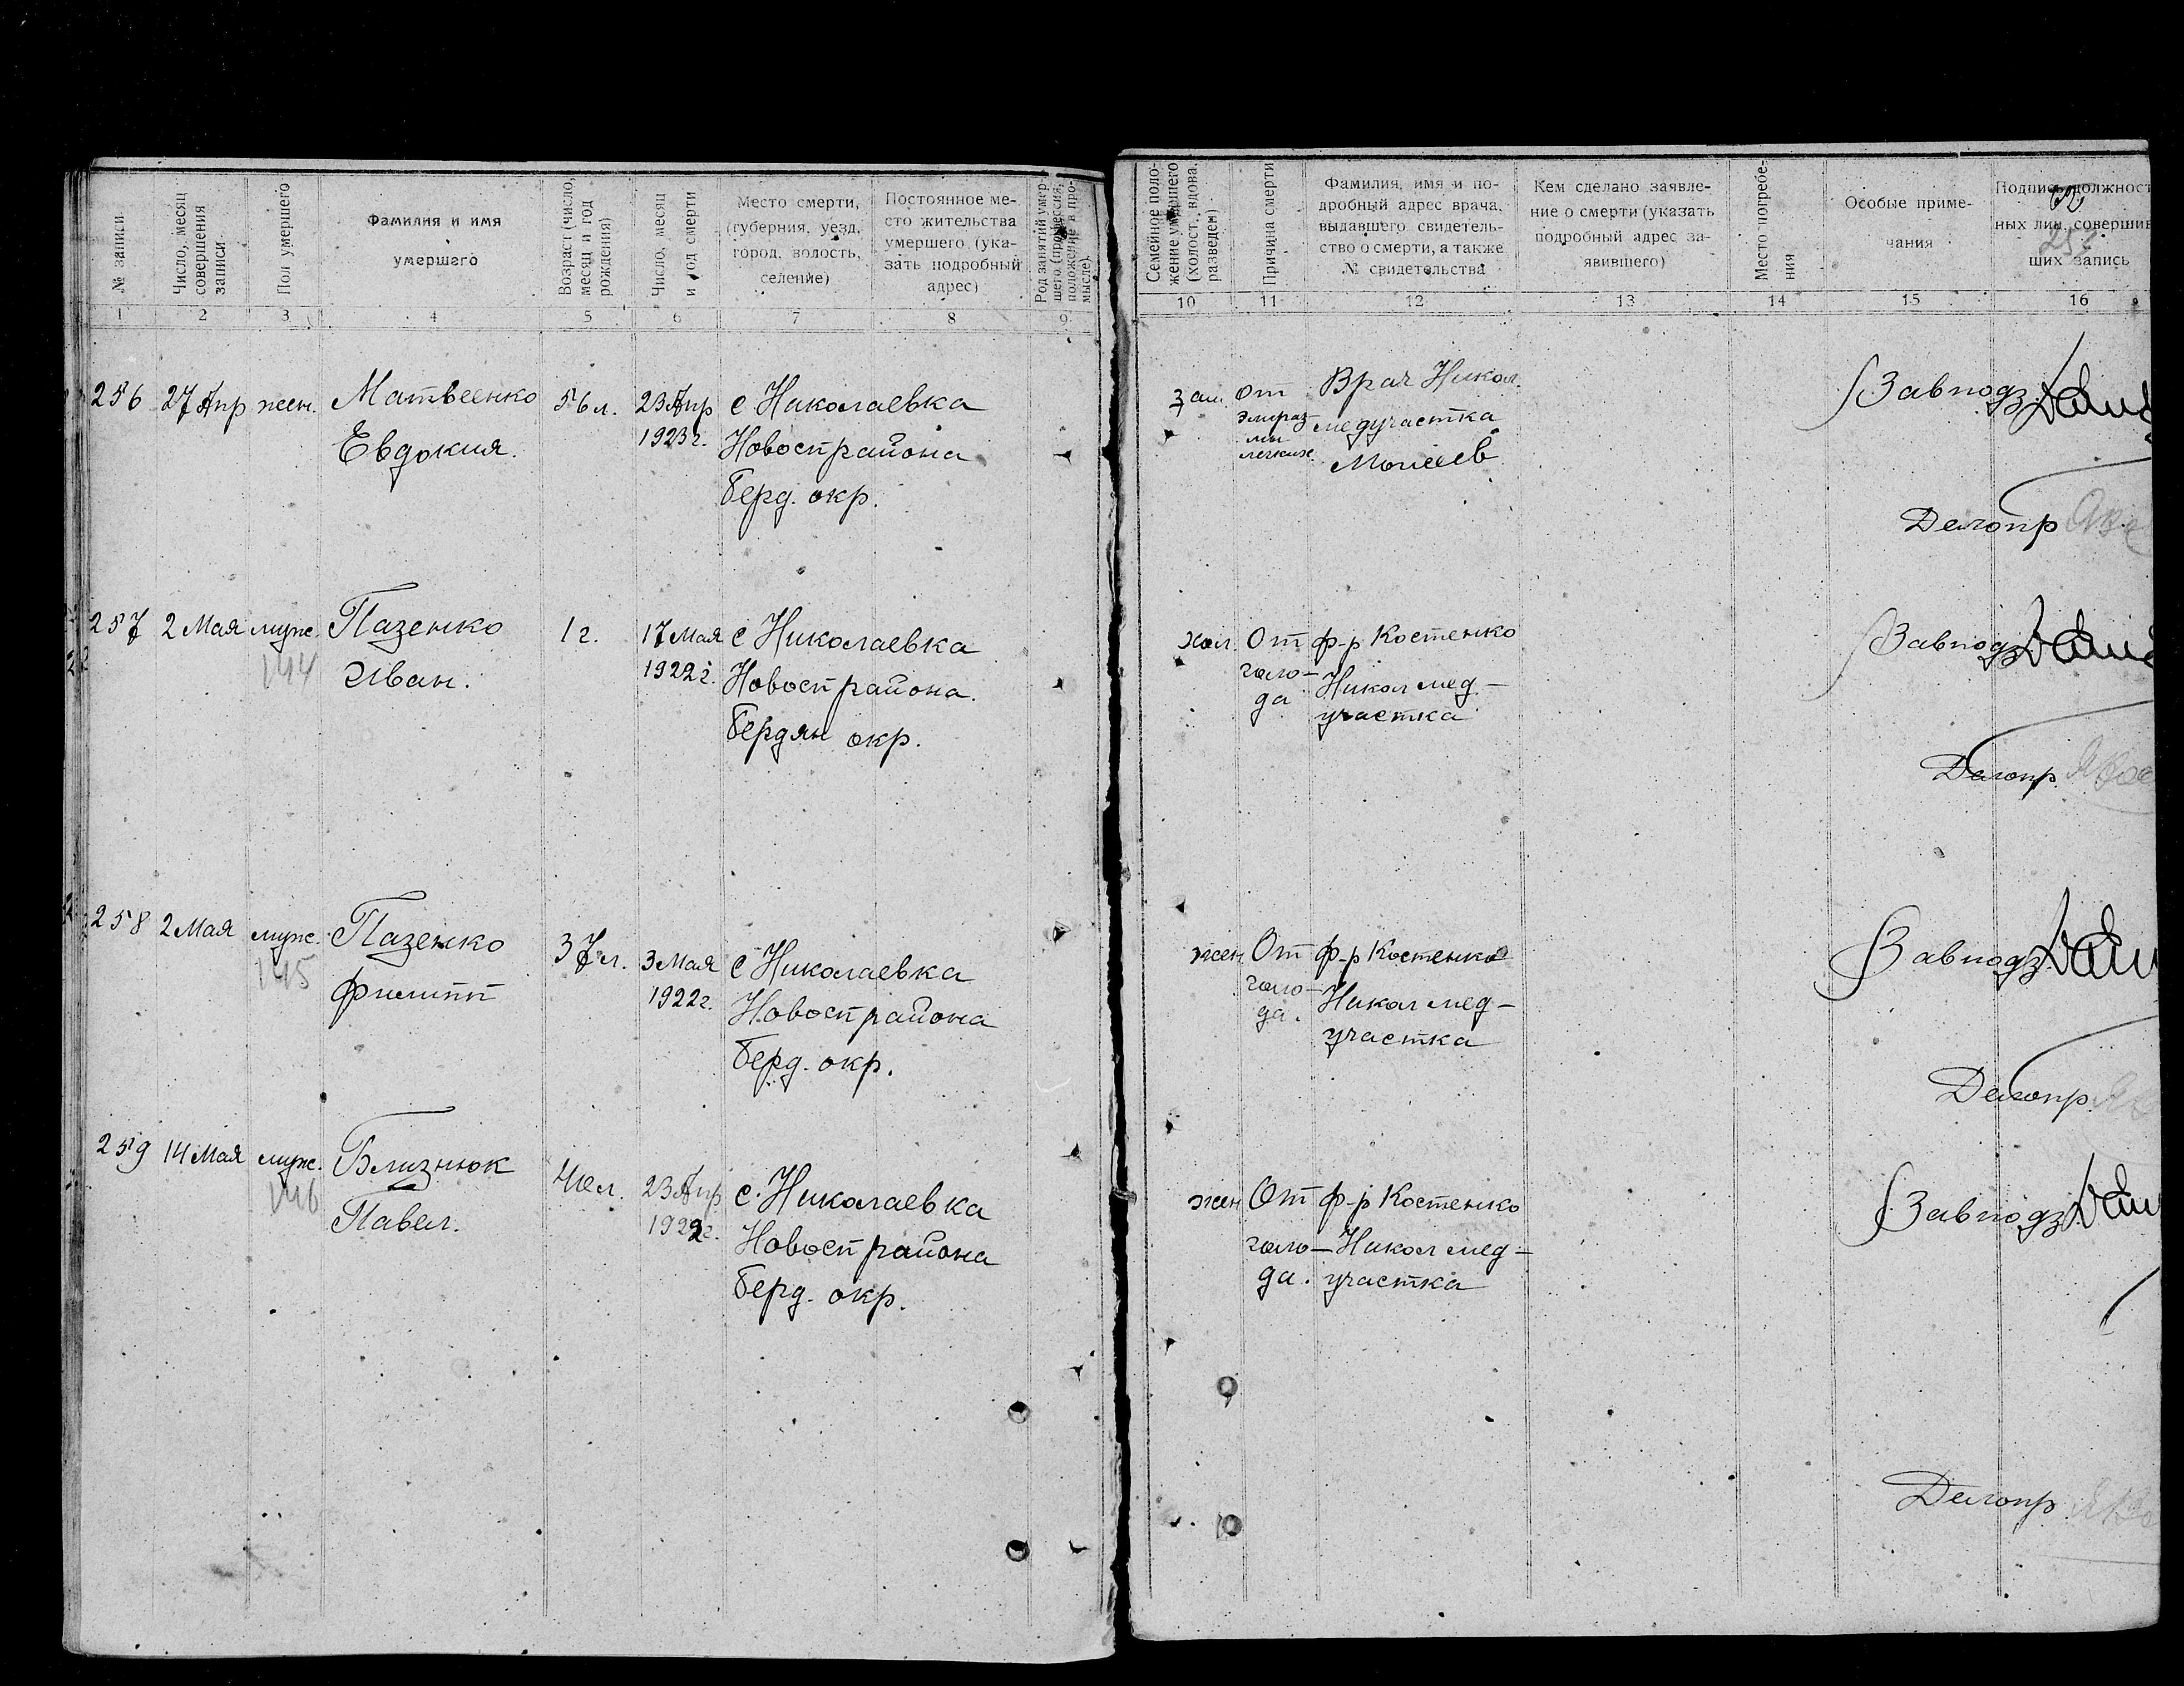 № записи
Число, месяц
совершения
записи
Пол умершего
Фамилия и имя
умершего
Возраст (число,
месяц и год
рождения)
Число, месяц
и год смерти
Место смерти,
(губерния, уезд,
город, волость,
селение)
Постоянное ме-
сто жительства
умершего (ука-
зать подробный
адрес)
Род занятий умер
шего (профессия,
положение в про-
мысле).
Семейное поло-
жение умершего
(холост, вдова,
разведен)
Причина смерти
Фамилия, имя и по-
дробный адрес врача,
выдавшего свидетель-
ство о смерти, а также
№ свидетельства
Кем сделано заявле-
ние о смерти (указать
подробный адрес за-
явившего)
Место погребе-
ния
Особые приме-
чания
Подпись должност
ных лиц, совершив
ших запись
1 2 3 4 5 6 7 8 9 10 11 12 13 14 15 16
256 27 Апр жен. Матвеенко 56 л. 23 Апр с Николаевка зам. От Врач Никол. Завподз
Евдокия. 1923 г. Новосп района медучастка
легких
Берд. окр. Делопр
257 2 Мая муж. Пазенко 1 г. 17 Мая с Николаевка хол. От ф-р Костенко Завподз
144 Иван. 1922 г. Новосп района. голо- Никол мед-
да участка
Бердян окр. Делопр.
258 2 Мая муж. Пазенко 37 л. 3 Мая с Николаевка жен От ф-р Костенко Завподз
145 Филипп 1922 г. Новосп района голо- Никол мед-
да. участка
Берд. окр. Делопр.
259 14 Мая муж. Близнюк 40 л. 23 Апр с. Николаевка жен От ф-р Костенко Завподз
146 Павел. 1922 г. Новосп района голо- Никол мед-
Берд. окр. да. участка
Делопр.